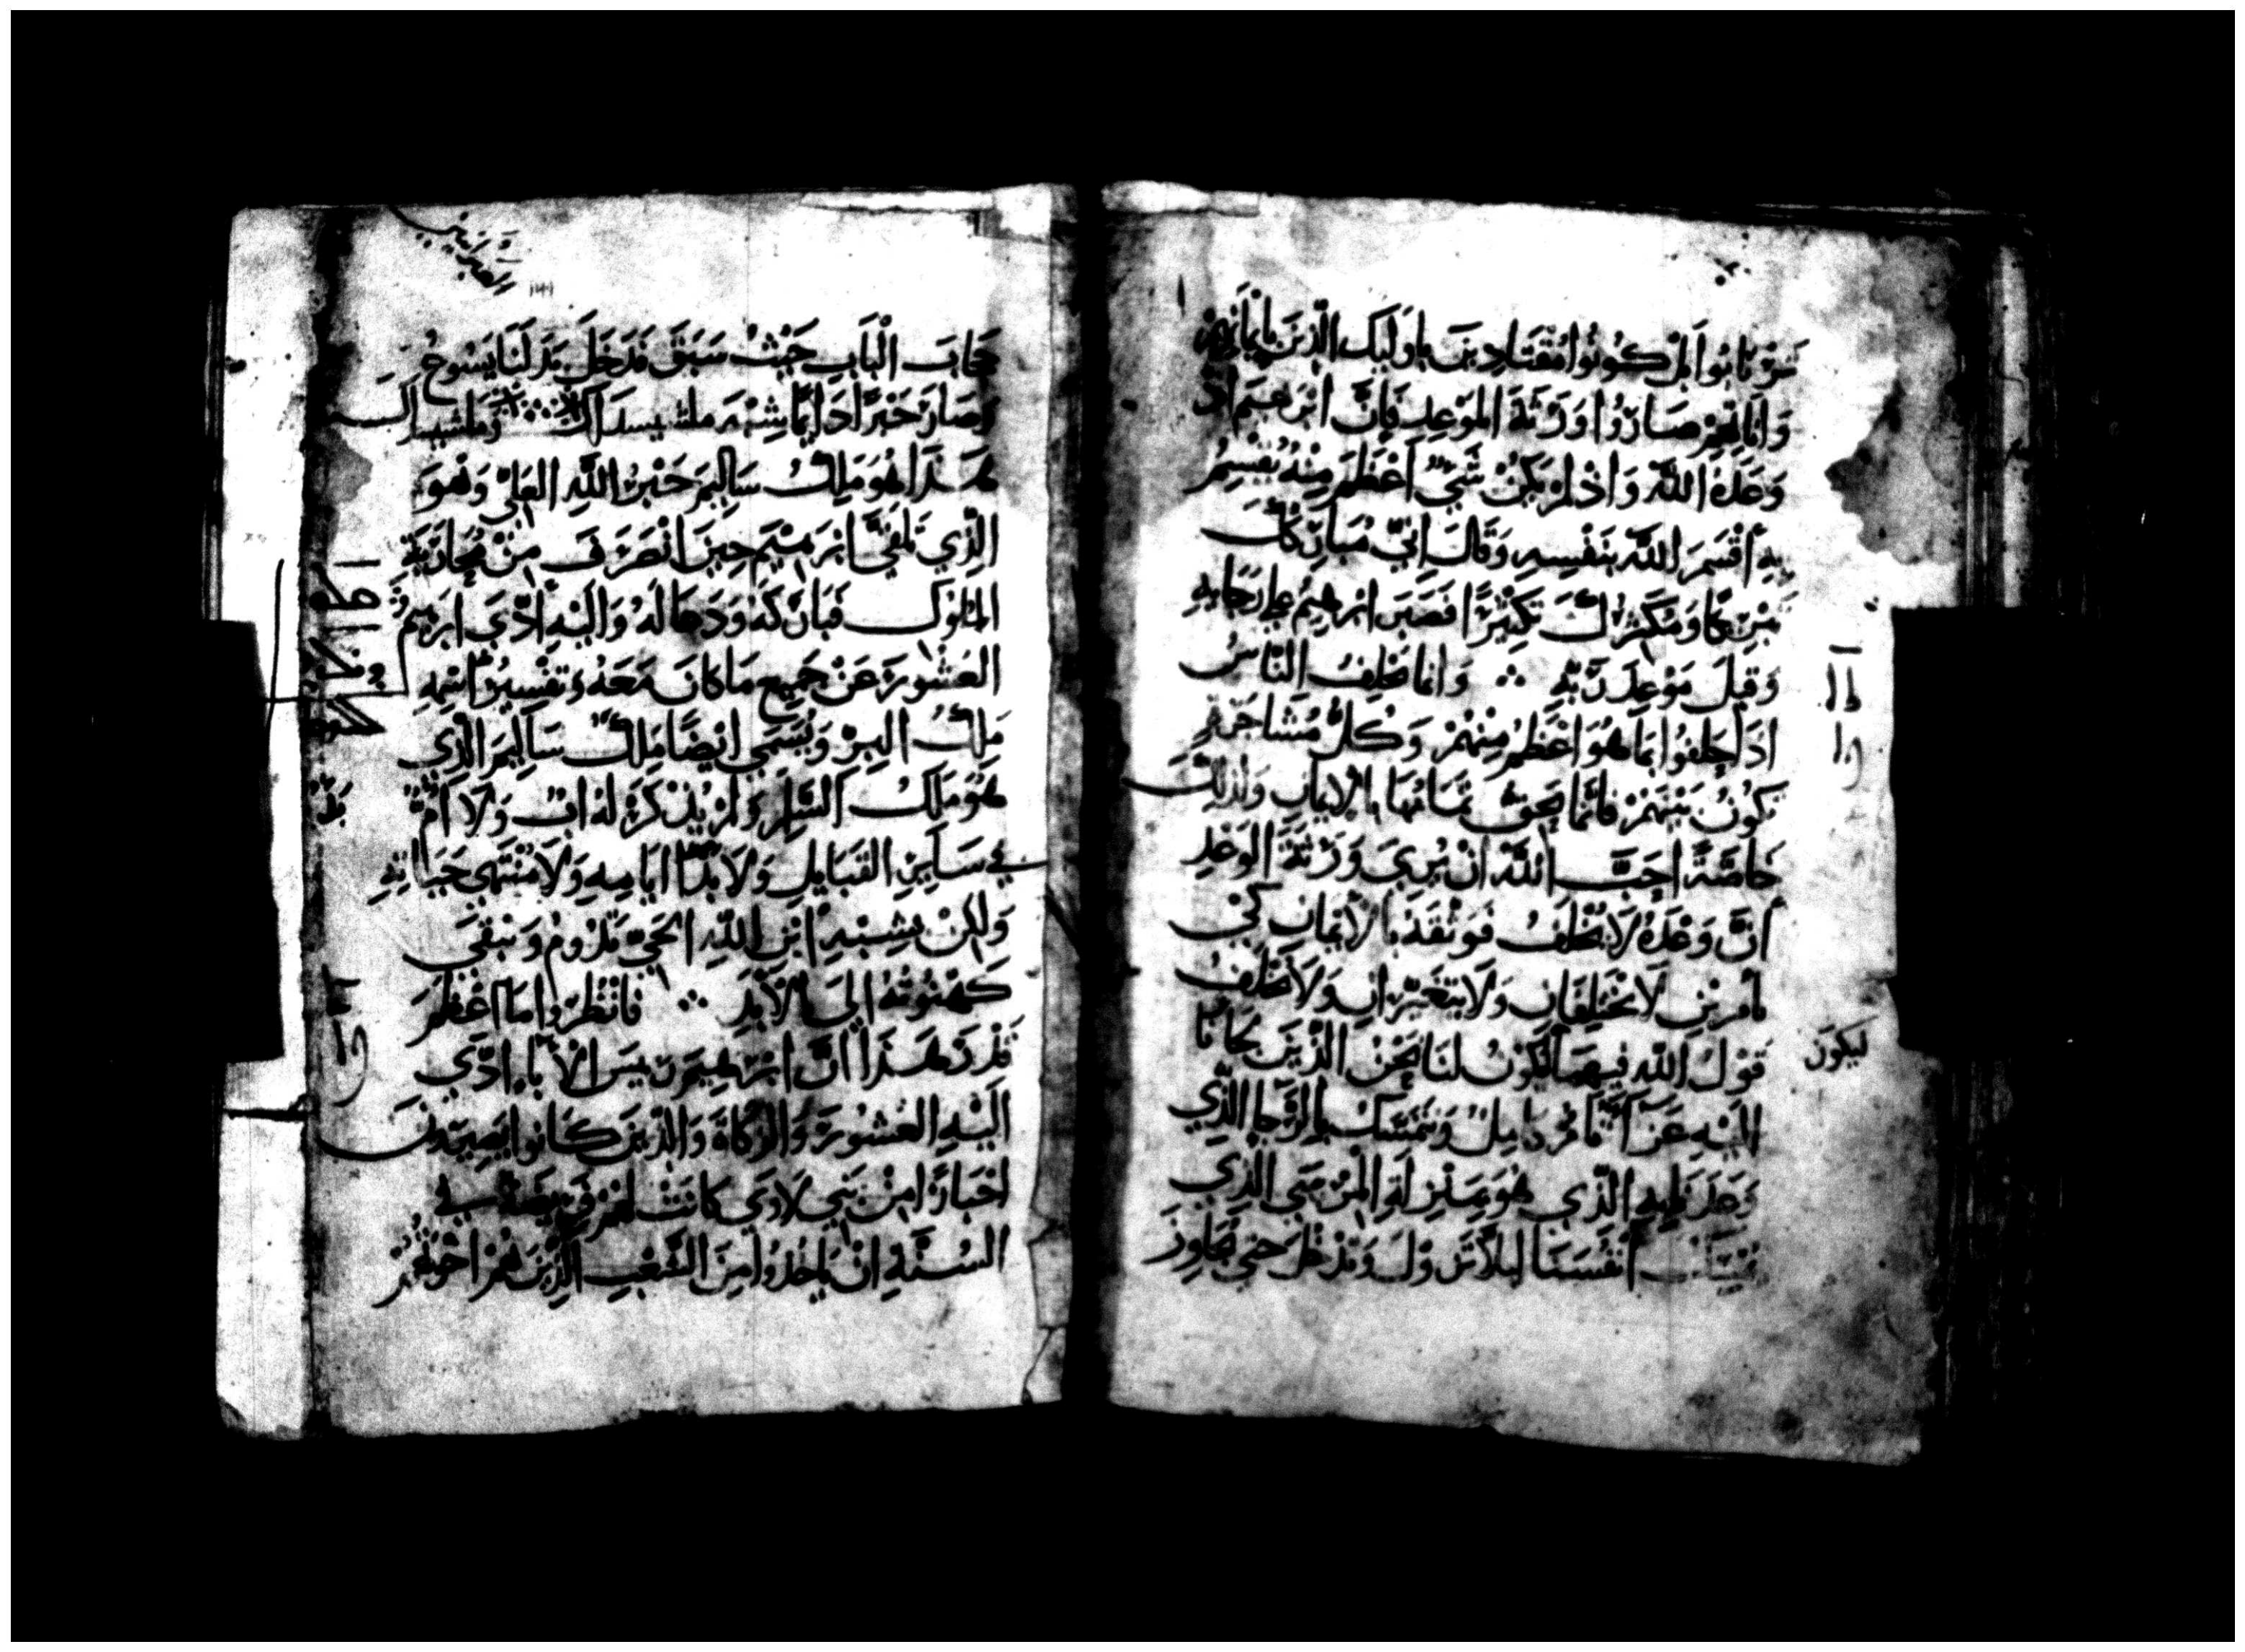 كونوا مقتادين باوليك الذين بايمانهم
واناتهم صاروا ورثة الموعد فان ابرهيم اذ
وعده الله واذ لم يكن شي اعظم منه يقسم
به اقسم الله بنفسه وقال اني مباركك
ومكثرك تكثيرا فصبر ابرهيم على رجايه
وقبل موعد ربه ∴ وانما يحلف الناس
اذا حلفوا بما هو اعظم منهم وكل مشاجرة
تكون بينهم فانما يحق ثباتها بالايمان ولذلك
خاصة احب الله ان يري ورثة الوعد
ان وعده لا يخلف فوثقه بالايمان لكي
بامرين لا يختلفان ولا يتغيران ولا يخلف
قول الله فيهما ليكون لنا نحن الذين لجانا
ليكون
اليه عزا ونتمسك بالرجا الذي
وعد به الذي هو بمنزلة المرسي الذي
انفسنا ليلا تزول وتدخل حتي تجاوز
العبرانيين
حجاب الباب حيث سبق فدخل بدلنا يسوع
وصار حبرا دايما شبه ملشيسداك ∴ وملشيسداك
هذا هو ملك ساليم حبر الله العلي وهو
الذي تلقي ابرهيم حين انصرف من محاربة
الملوك فباركه ودعا له واليه ادي ابرهيم
العشور عن جميع ما كان معه وتفسير اسمه
ملك البر ويسمي ايضا ملك ساليم الذي
هو ملك السلم ولم يذكر له اب ولا ام
في ساير القبايل ولا بدا ايامه ولا منتهي حياته
ولكن بشبه ابن الله الحي تدوم وتبقي
كهنوته الي الابد ∴ فانظروا ما اعظم
قدر هذا ان ابرهيم ريس الابا ادي
اليه العشور والزكاة والذين كانوا يصيرون
احبارا من بني لاوي كانت لهم في
السنة ان ياخذوا من الشعب الذين هم اخوتهم